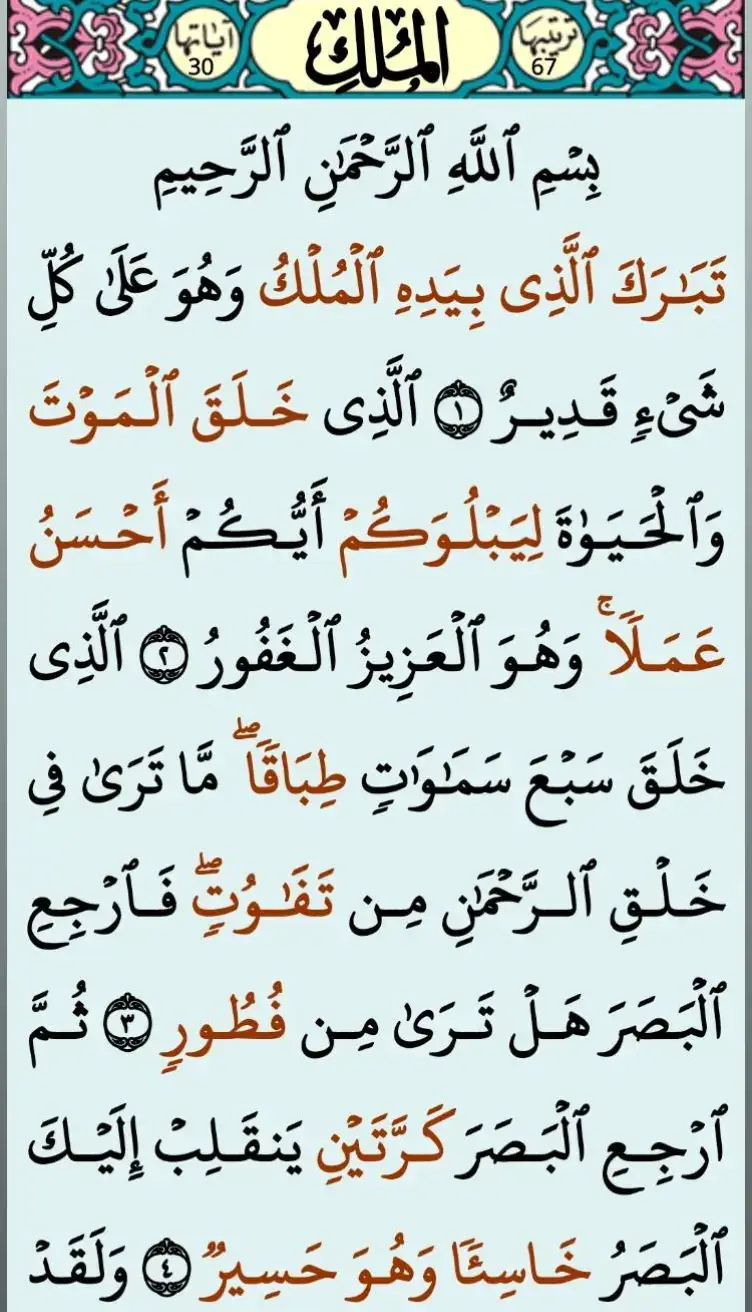 ترتيبها 67 الملك آياتها 30
بِسْمِ ٱللَّهِ ٱلرَّحْمَٰنِ ٱلرَّحِيمِ
تَبَٰرَكَ ٱلَّذِى بِيَدِهِ ٱلْمُلْكُ وَهُوَ عَلَىٰ كُلِّ
شَىْءٍ قَدِيرٌ ١ ٱلَّذِى خَلَقَ ٱلْمَوْتَ
وَٱلْحَيَوٰةَ لِيَبْلُوَكُمْ أَيُّكُمْ أَحْسَنُ
عَمَلًا ۚ وَهُوَ ٱلْعَزِيزُ ٱلْغَفُورُ ٢ ٱلَّذِى
خَلَقَ سَبْعَ سَمَٰوَٰتٍ طِبَاقًا ۖ مَّا تَرَىٰ فِى
خَلْقِ ٱلرَّحْمَٰنِ مِن تَفَٰوُتٍ ۖ فَٱرْجِعِ
ٱلْبَصَرَ هَلْ تَرَىٰ مِن فُطُورٍ ٣ ثُمَّ
ٱرْجِعِ ٱلْبَصَرَ كَرَّتَيْنِ يَنقَلِبْ إِلَيْكَ
ٱلْبَصَرُ خَاسِئًا وَهُوَ حَسِيرٌ ٤ وَلَقَدْ